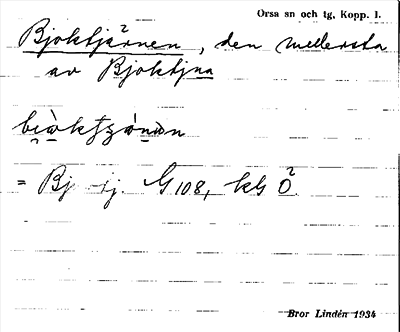 Orsa sn och tg, Kopp. l.
Bjoktjärnen, den mellersta
av Bjoktjna
= Bj ij. G 108, kG Ö
Bror Lindén 1934